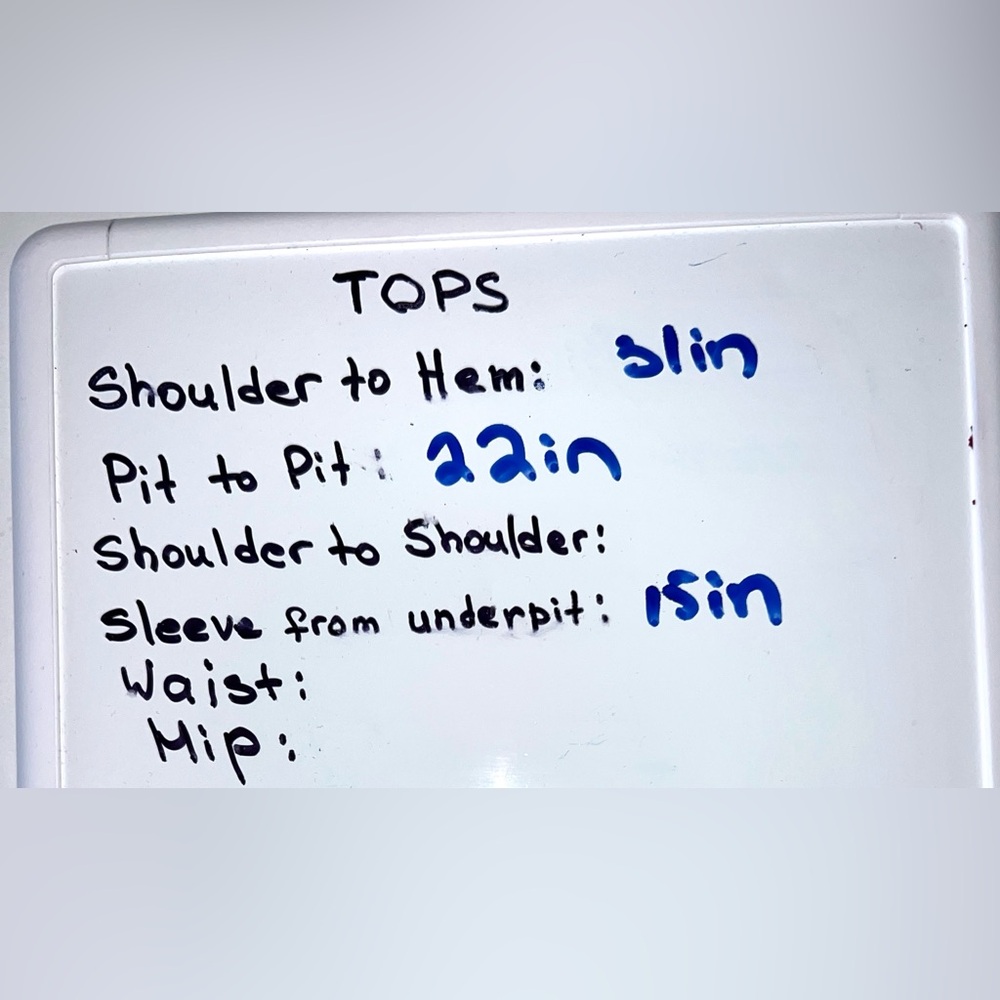 TOPS
Shoulder to Hem: 31in
Pit to Pit: 22in
Shoulder to Shoulder:
Sleeve from underpit: 15in
Waist:
Hip: